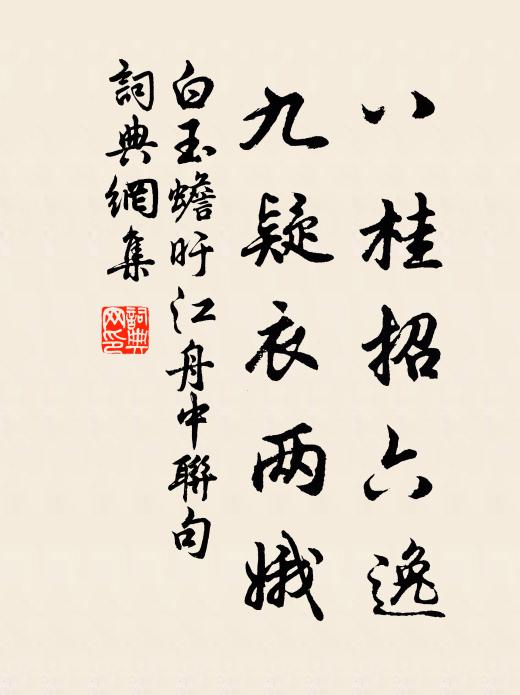 八桂招六逸
九疑衣两娥
白玉蟾旴江舟中聯句
詞典網集
詞典网印